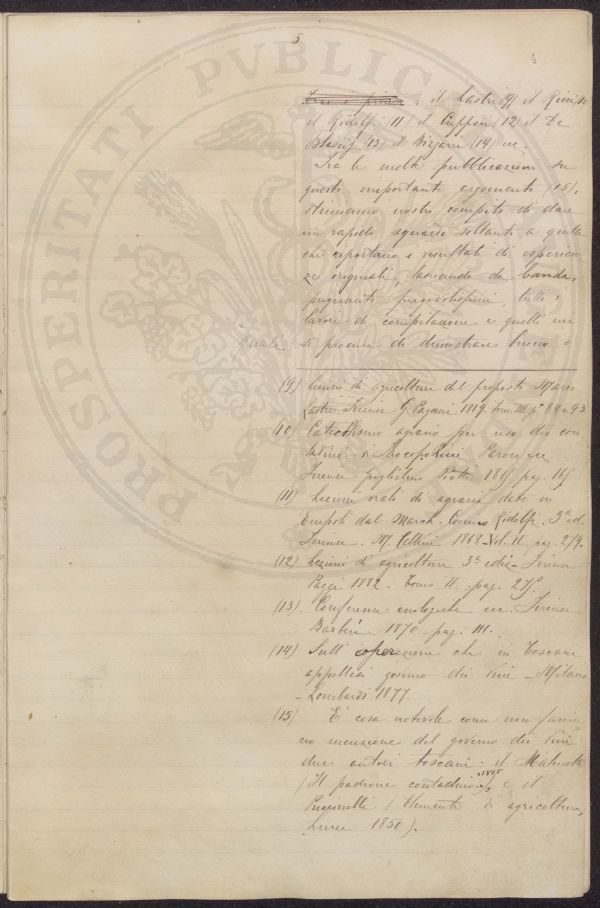 5
: il Lastri (9) il Ricci (10
il Ridolfi (11) il Cuppari (12 il De
Blasiis (13) il Bizzarri (14) ecc.
Tra le molte pubblicazioni su
questo importante argomento (15),
stimiamo nostro compito di dare
un rapido sguardo soltanto a quelle
che riportano i resultati di esperien
ze originali, lasciando da banda,
tutti i
lavori di compilazione e quelli nei
quali si procura di dimostrare buono o
(9) Corso di agricoltura del proposto Marco
Lastri, Firenze G. Pagani 1819. tom. III pag. 89 e 93.
(10) Catechismo agrario per uso dei con
tadini di Jacopo Ricci Paroco ecc
Firenze Guglielmo Piatti 1815 pag.
(11) Lezioni orali di agraria date in
Empoli dal March. Cosimo Ridolfi. 3ª ed.
Firenze. M. Cellini 1868. Vol. II pag. 279.
(12) Lezioni di agricoltura 3ª ediz. Firenze
Paggi 1882 - Tomo II. pag. 275.
(13) Conferenze enologiche ecc. Firenze
Barbèra. 1870 pag. 111.
(14) Sull' operazione che in Toscana
appellasi governo dei Vini - Milano
- Lombardi 1877.
(15) È cosa notevole come non faccia
no menzione del governo dei Vini
due autori toscani: il Malenotti
(Il padrone contadino 1815) e il
Puccinelli (Elementi di agricoltura,
Lucca 1850).
PROSPERITATI PVBLIC